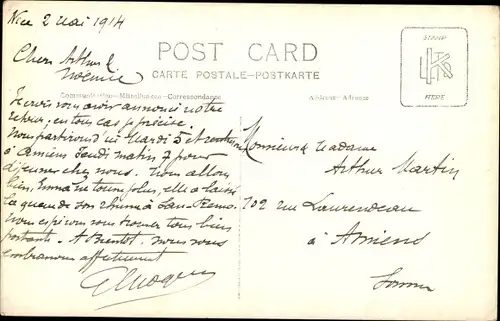 Nice 2 Mai 1914
STAMP
HERE
POST CARD
CARTE POSTALE-POSTKARTE
Communication-Mitteilungen-Correspondance
Address-Adresse
Chers Arthur &
Noémie
Je crois vous avoir annoncé notre
retour, en tous cas je précise.
Nous partirons d'ici Mardi 5 et
à Amiens Jeudi matin 7 pour
déjeuner chez nous. Nous allons
bien, Emma ne tousse plus, elle a laissé
la queue de son rhume à San-Remo.
Nous espérons vous trouver tous bien
portants. A Bientôt. Nous vous
embrassons affectueusement
Monsieur & Madame
Arthur Martin
102 rue Laurendeau
à Amiens
Somme